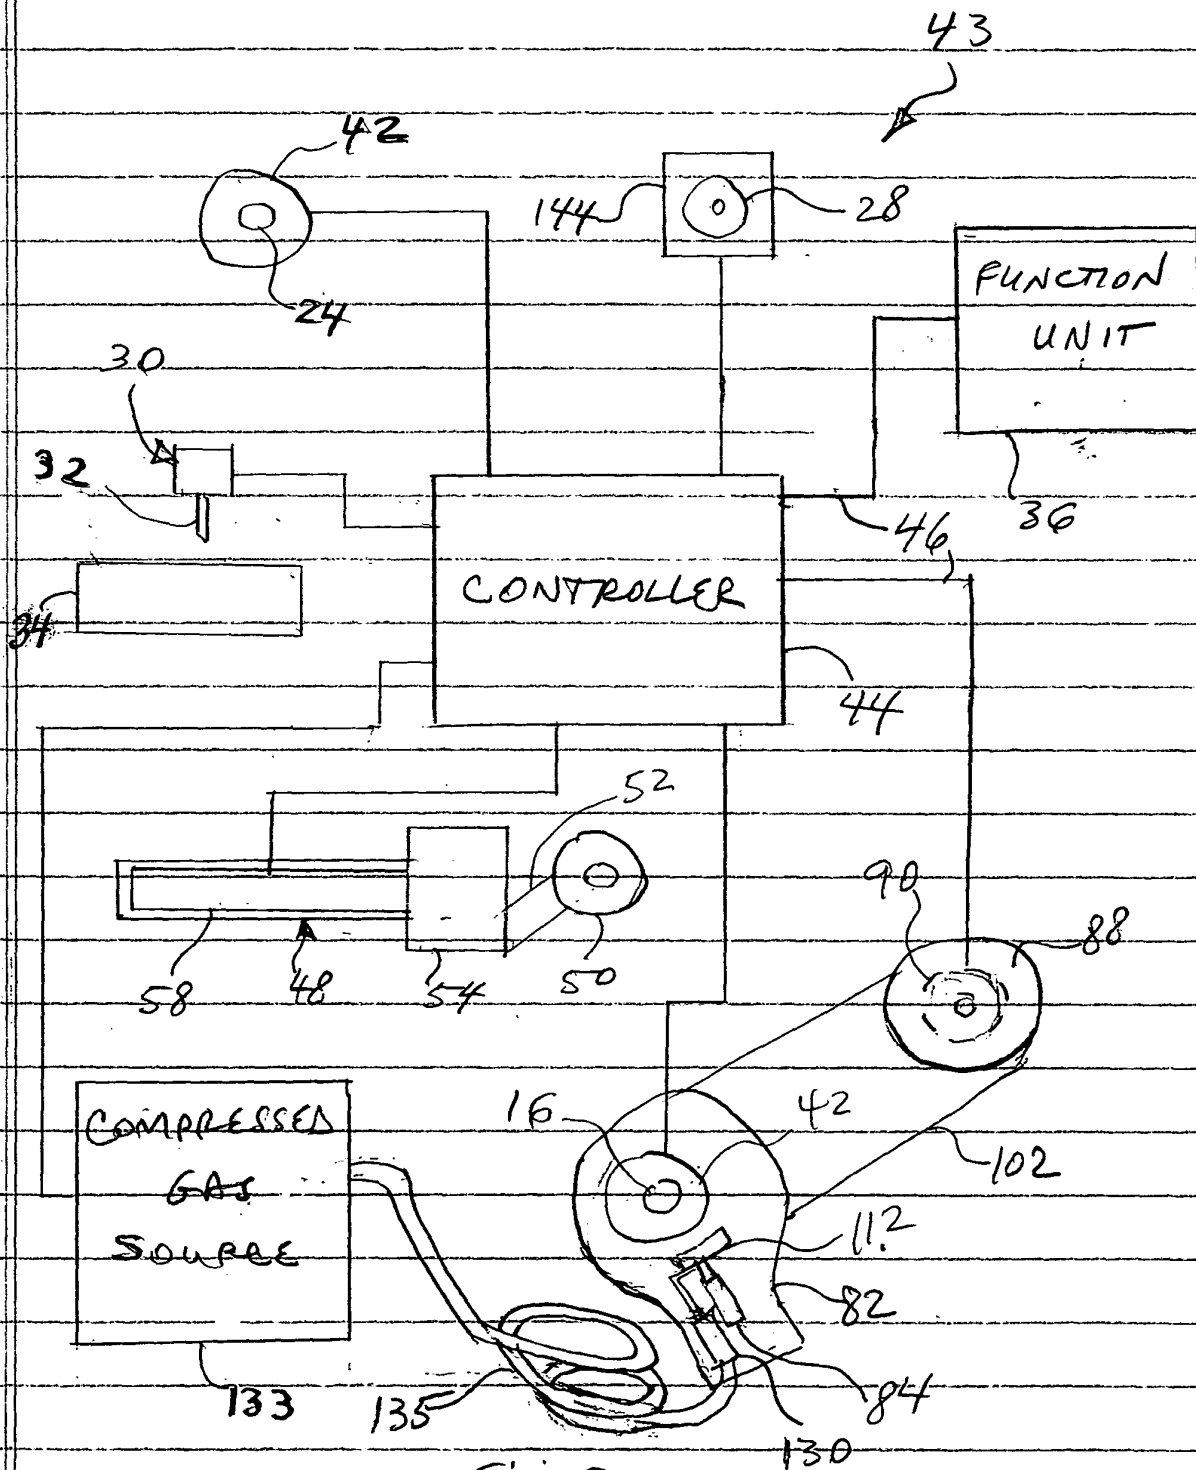 43
42
144
28
24
FUNCTION
UNIT
30
32
36
46
CONTROLLER
34
44
52
90
88
58
48
54
50
COMPRESSED
GAS
SOURCE
16
42
102
112
82
133
135
84
130